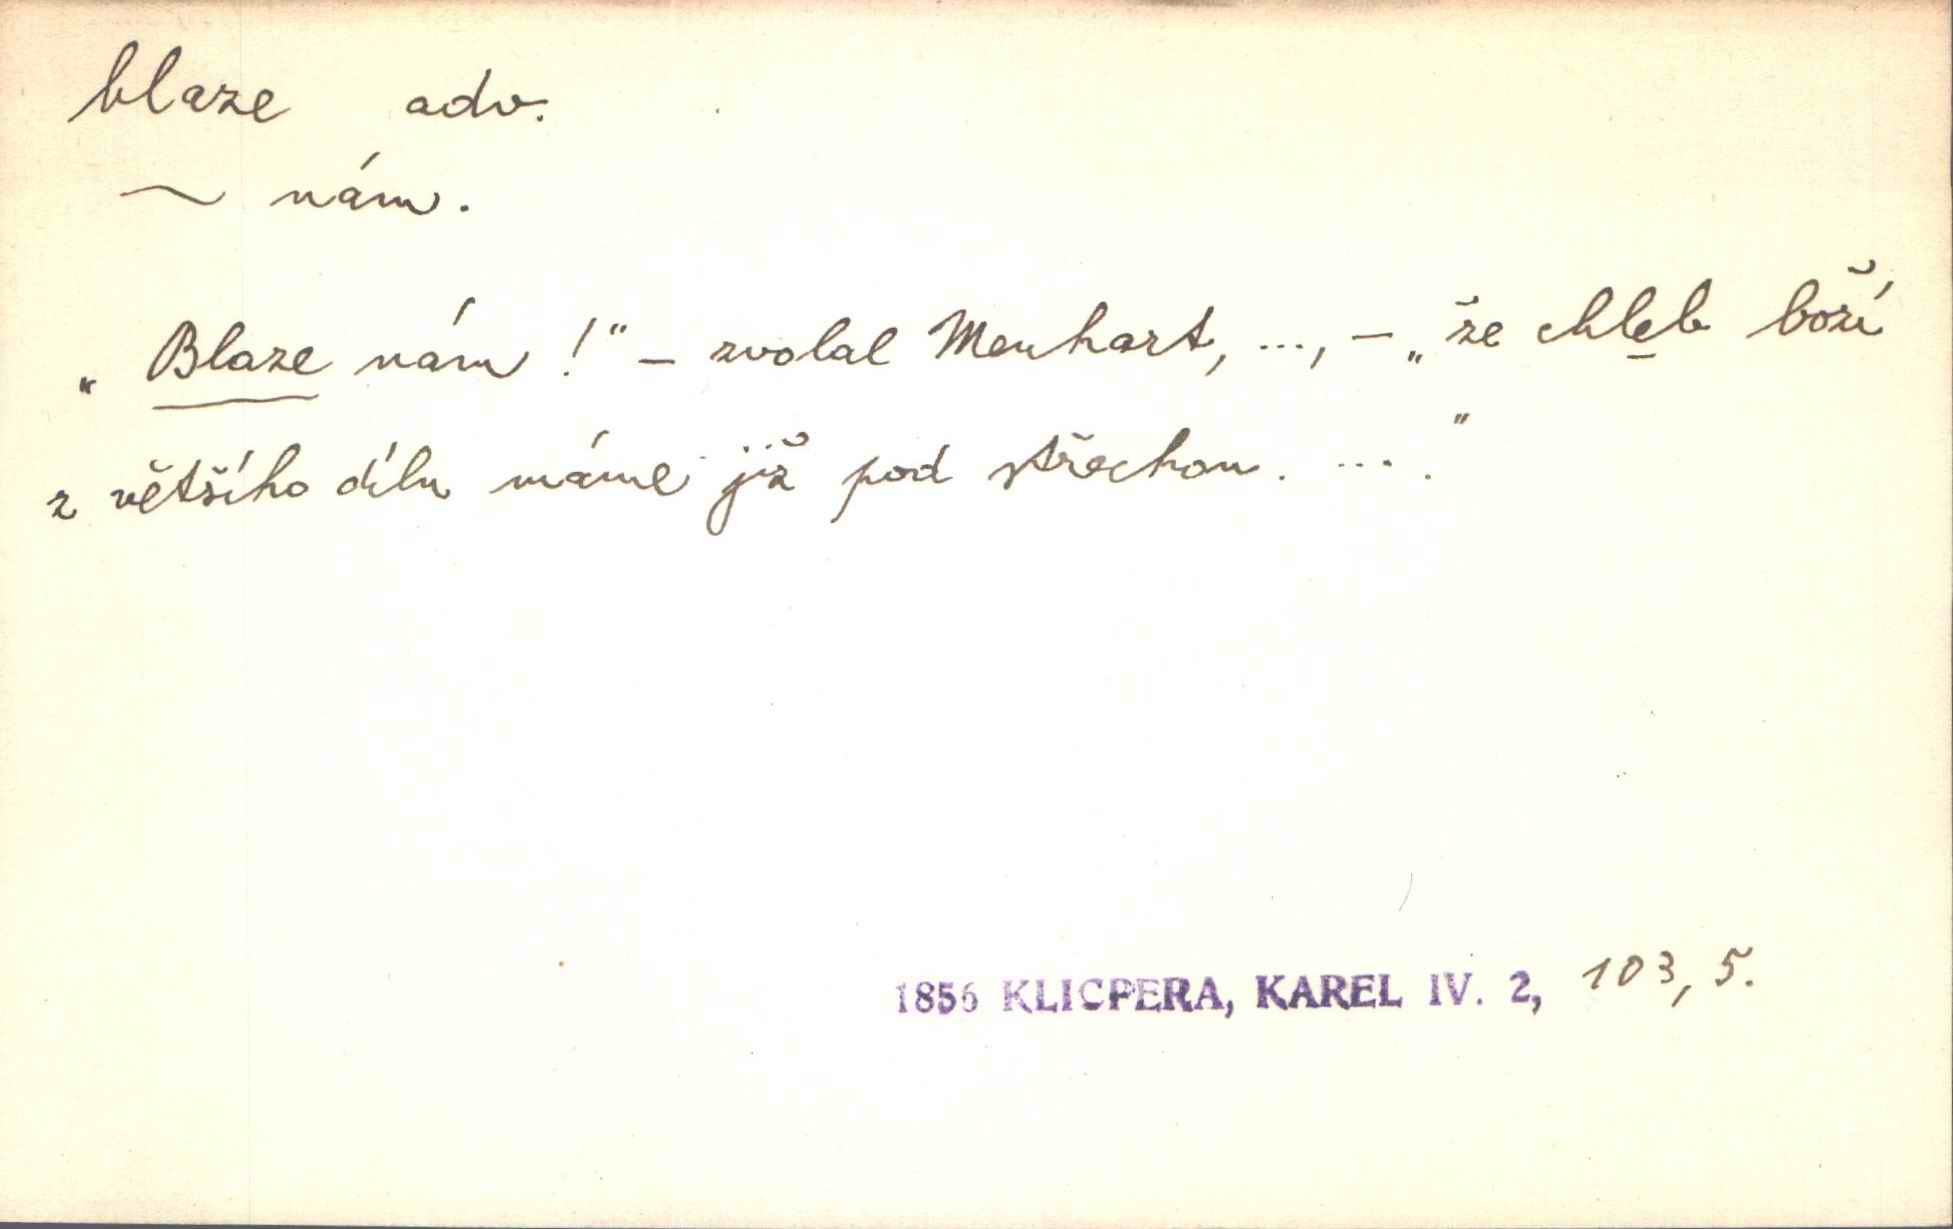 blaze adv.
~ nám.
„Blaze nám!“ – zvolal Menhart, ..., – „že chleb boží
z většího dílu máme již pod střechou. ... .“
1856 KLICPERA, KAREL IV. 2, 103, 5.